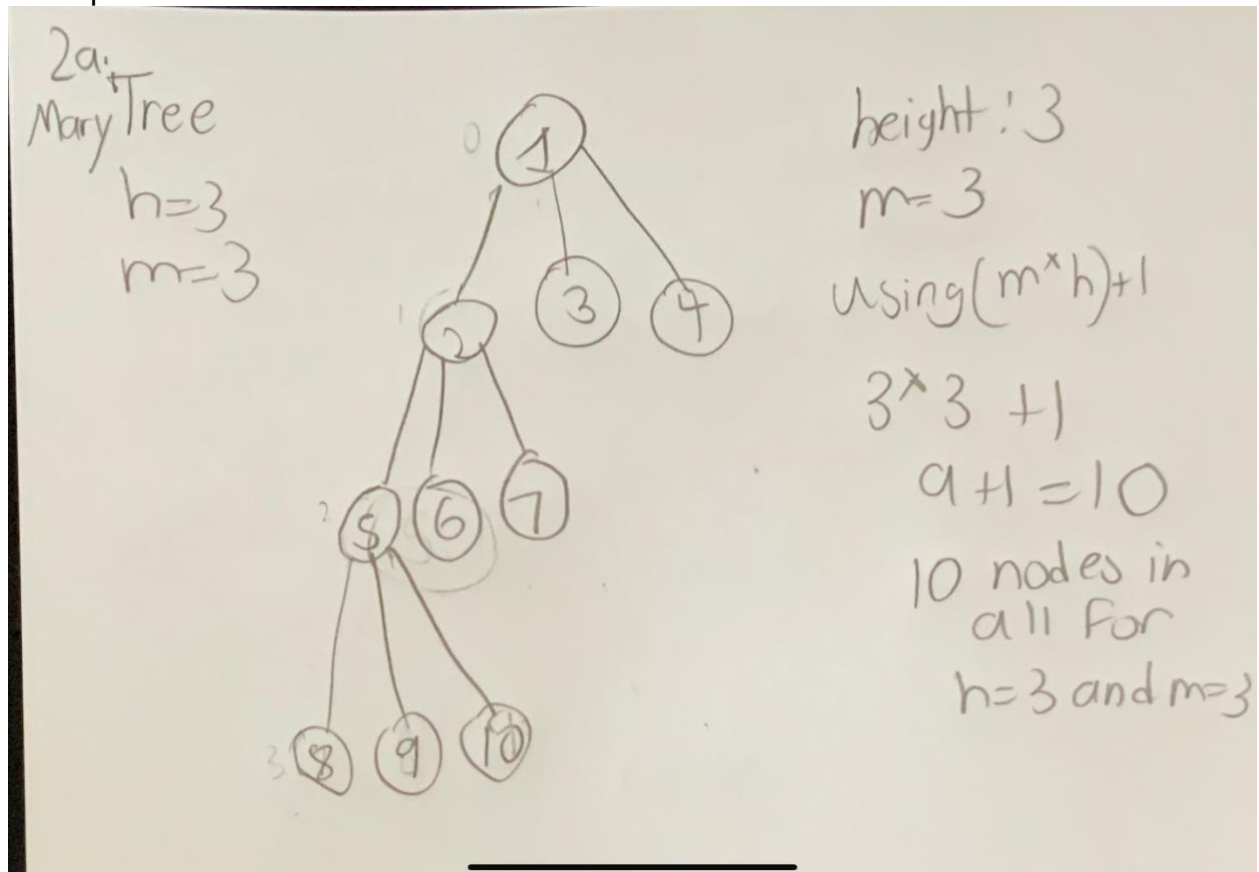 2a.
Mary Tree
h=3
m=3
0
1
3
4
1
2
2
5
6
7
3
8
9
10
height: 3
m=3
Using (m*h)+1
3*3 +1
9+1=10
10 nodes in
all for
h=3 and m=3